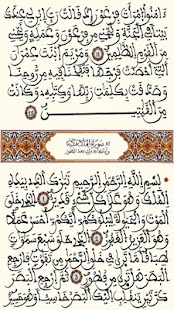 ءَامَنُوا امْرَأَتَ فِرْعَوْنَ إِذْ قَالَتْ رَبِّ ابْنِ لِي عِندَكَ
بَيْتًا فِي الْجَنَّةِ وَنَجِّنِي مِن فِرْعَوْنَ وَعَمَلِهِ وَنَجِّنِي
مِنَ الْقَوْمِ الظَّٰلِمِينَ وَمَرْيَمَ ابْنَتَ عِمْرَٰنَ
الَّتِي أَحْصَنَتْ فَرْجَهَا فَنَفَخْنَا فِيهِ مِن رُّوحِنَا
وَصَدَّقَتْ بِكَلِمَٰتِ رَبِّهَا وَكِتَٰبِهِ وَكَانَتْ
مِنَ الْقَٰنِتِينَ
سورة الملك مكية
نزلت بعد الطور
بِسْمِ اللَّهِ الرَّحْمَٰنِ الرَّحِيمِ تَبَٰرَكَ الَّذِي بِيَدِهِ
الْمُلْكُ وَهُوَ عَلَىٰ كُلِّ شَيْءٍ قَدِيرٌ الَّذِي خَلَقَ
الْمَوْتَ وَالْحَيَوٰةَ لِيَبْلُوَكُمْ أَيُّكُمْ أَحْسَنُ عَمَلًا
وَهُوَ الْعَزِيزُ الْغَفُورُ الَّذِي خَلَقَ سَبْعَ سَمَٰوَٰتٍ
طِبَاقًا مَّا تَرَىٰ فِي خَلْقِ الرَّحْمَٰنِ مِن تَفَٰوُتٍ فَارْجِعِ
الْبَصَرَ هَلْ تَرَىٰ مِن فُطُورٍ ثُمَّ ارْجِعِ الْبَصَرَ
كَرَّتَيْنِ يَنقَلِبْ إِلَيْكَ الْبَصَرُ خَاسِئًا وَهُوَ حَسِيرٌ